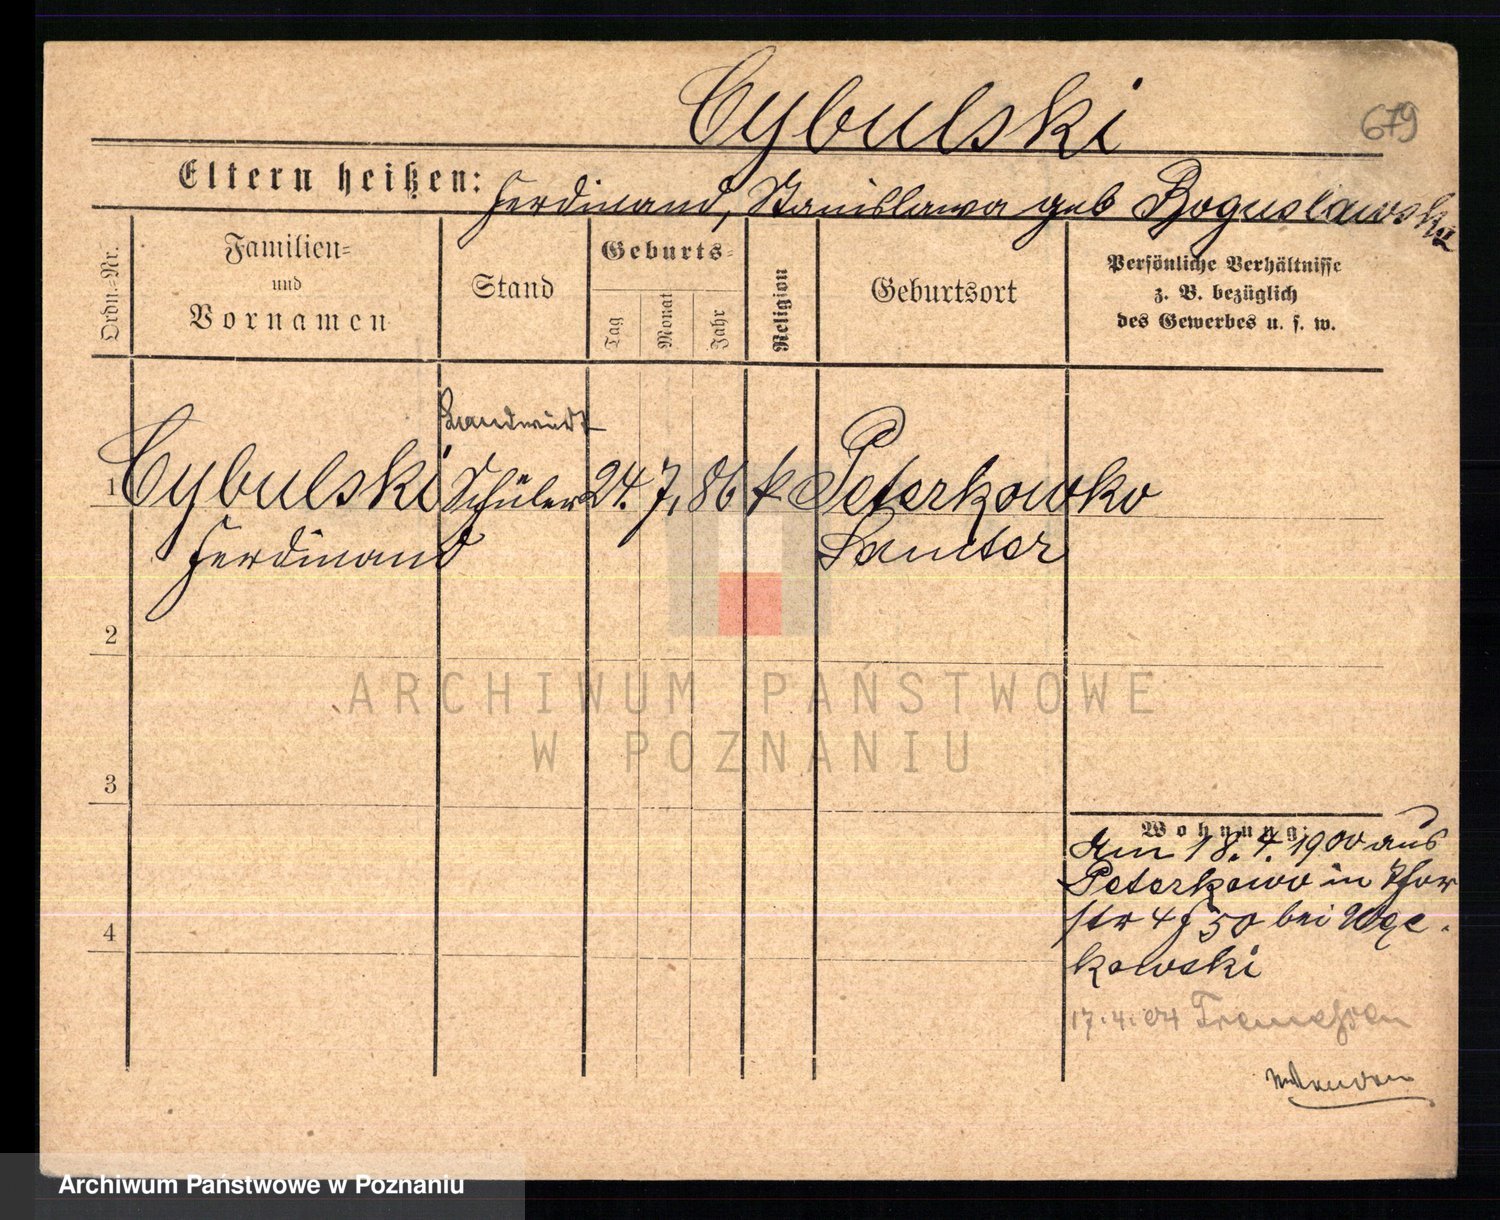 Cybulski
679
Eltern heißen: Ferdinand, Stanislawa geb Boguslawska
Ordn.-Nr.
Familien-
und
Vornamen
Stand
Geburts-
Tag
Monat
Jahr
Religion
Geburtsort
Persönliche Verhältnisse
z. B. bezüglich
des Gewerbes u. s. w.
Landwirt
1 Cybulski Schüler 24. 7. 86 k Peterkowko
Ferdinand Samter
2
ARCHIWUM PAŃSTWOWE
W POZNANIU
3
Wohnung:
Am 18. 4. 1900 aus
Peterkowo in
str bei
kowski
4
17. 4. 04
Archiwum Państwowe w Poznaniu